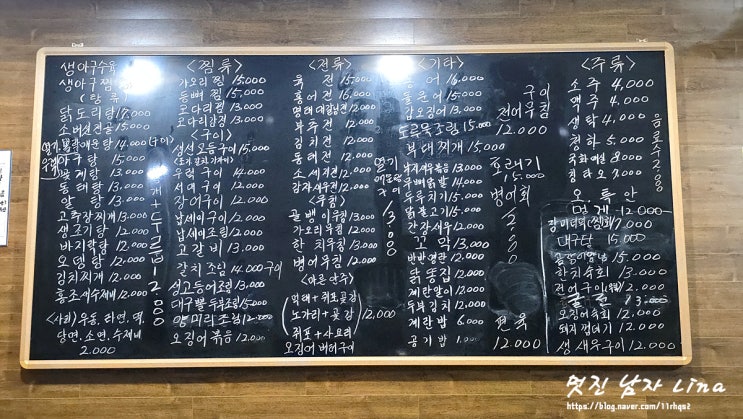 생아구수육
생아구찜
<탕 류>
닭도리탕 17,000
소버섯전골 15,000
아구탕 15,000
꽃게탕 13,000
동태탕 13,000
알 탕 13,000
고추장찌개 13,000
생조기탕 12,000
바지락탕 12,000
오뎅탕 12,000
김치찌개 12,000
홍조새수제비 12,000
<사리> 우동, 라면, 떡,
당면, 소면, 수제비
2,000
<찜 류>
가오리찜 15,000
등뼈찜 15,000
코다리찜 13,000
코다리강정 13,000
<구이>
생선모듬구이 15,000
우럭구이 14,000
서대구이 12,000
장어구이 12,000
납세미구이 12,000
납세미조림 12,000
고갈비 13,000
갈치조림 14,000 구이
생고등어조림 13,000
대구뽈두부조림 15,000
양미리조림 12,000
오징어볶음 12,000
<전류>
육 전 15,000
홍어전 16,000
명태대가리전 12,000
부추전 12,000
김치전 12,000
동태전 12,000
소세지전 12,000
감자새우전 12,000
<무침>
골뱅이무침 13,000
가오리무침 13,000
한치무침 13,000
병어무침 12,000
<마른안주>
먹태+쥐포+곶감
노가리+곶감
쥐포+사요리
12,000
오징어버터구이
<기타>
홍 어 16,000
갑오징어 13,000
도루묵조림 15,000
부대찌개 15,000
두루치기 15,000
닭불고기 15,000
간장새우 12,000
꼬막 13,000
반반명란 12,000
닭똥집 12,000
계란말이 12,000
두부김치 12,000
계란밥 6,000
공기밥 1,000
구이
전어무침
12,000
포러기
15,000
병어회
편육
12,000
<주류>
소주 4,000
맥주 4,000
생탁 4,000
청하 5,000
국화매실 8,000
청타오 7,000
음료수 2,000
오 특 안
멍게 12,000
대구탕 15,000
한치숙회 13,000
전어구이(회) 12,000
오징어숙회 12,000
돼지껍데기 12,000
생새우구이 12,000
멋진 남자 Lina
https://blog.naver.com/11rhqs2